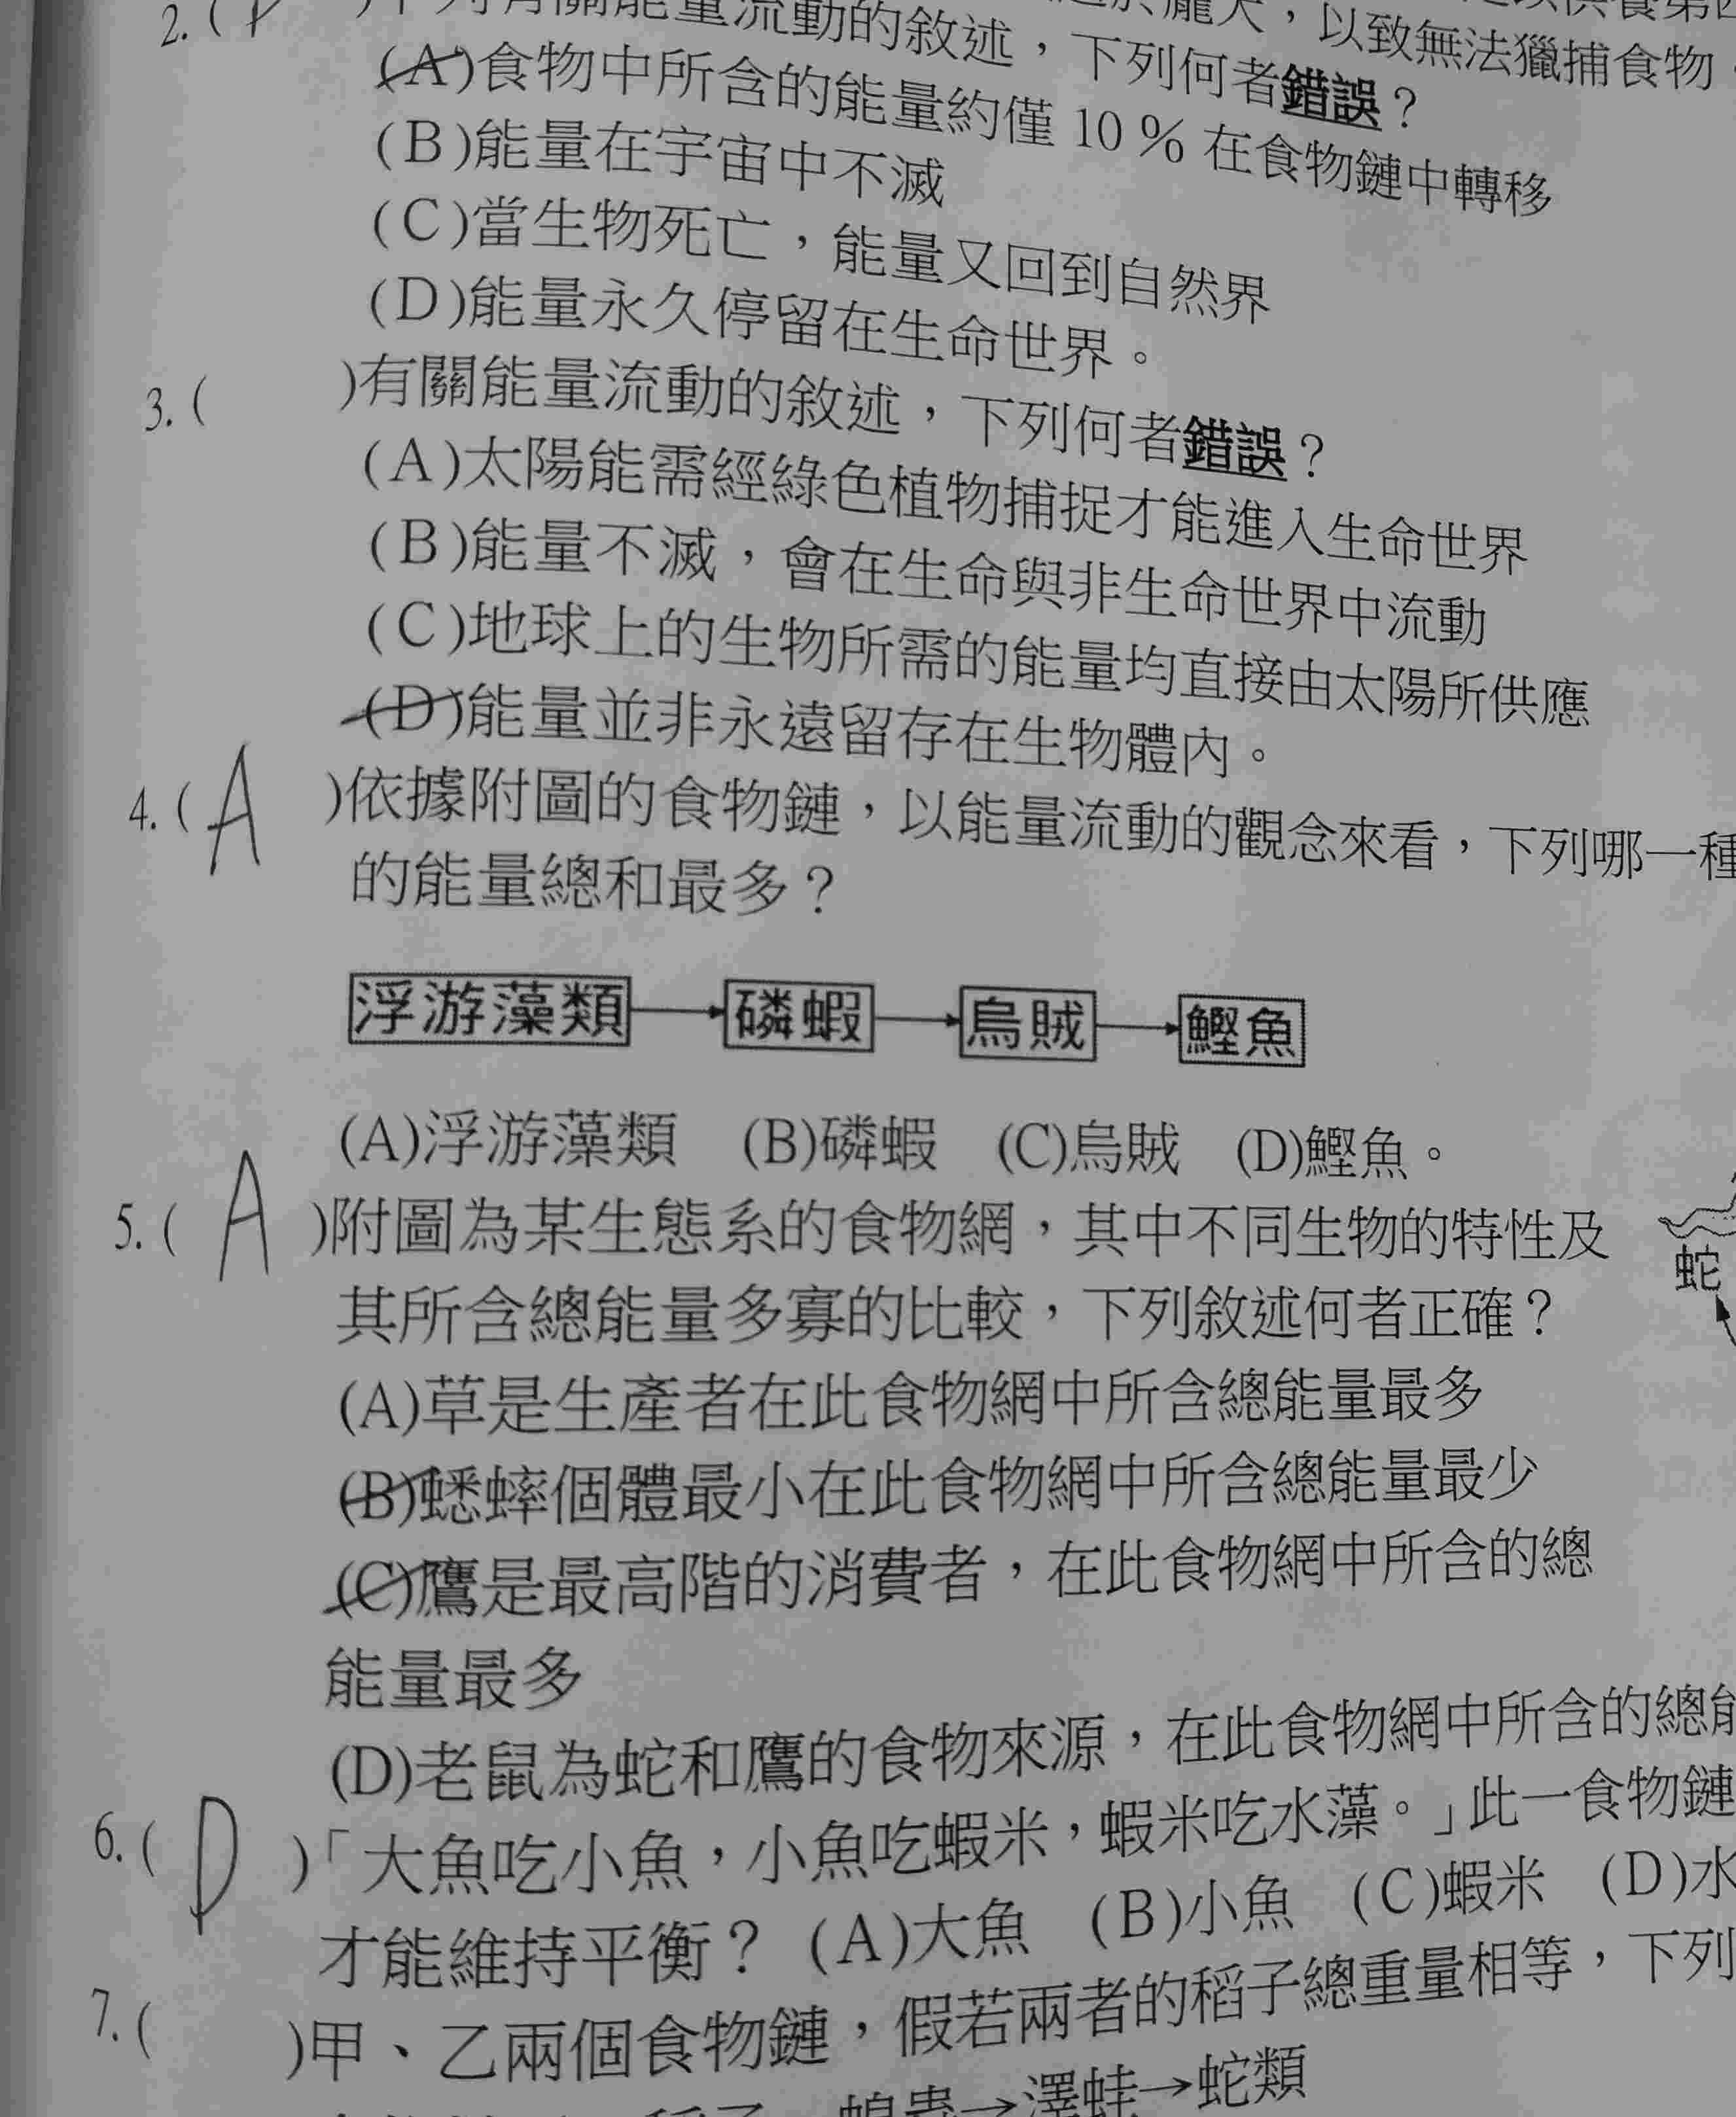 2. ( )下列有關能量流動的敘述，下列何者錯誤？
於龐大，以致無法獵捕食物
(A)食物中所含的能量約僅 10 % 在食物鏈中轉移
(B)能量在宇宙中不滅
(C)當生物死亡，能量又回到自然界
(D)能量永久停留在生命世界。
3. ( )有關能量流動的敘述，下列何者錯誤？
(A)太陽能需經綠色植物捕捉才能進入生命世界
(B)能量不滅，會在生命與非生命世界中流動
(C)地球上的生物所需的能量均直接由太陽所供應
(D)能量並非永遠留存在生物體內。
4. ( A )依據附圖的食物鏈，以能量流動的觀念來看，下列哪一種
的能量總和最多？
浮游藻類 → 磷蝦 → 烏賊 → 鰹魚
(A)浮游藻類 (B)磷蝦 (C)烏賊 (D)鰹魚。
5. ( A )附圖為某生態系的食物網，其中不同生物的特性及
其所含總能量多寡的比較，下列敘述何者正確？
蛇
(A)草是生產者在此食物網中所含總能量最多
(B)蟋蟀個體最小在此食物網中所含總能量最少
(C)鷹是最高階的消費者，在此食物網中所含的總
能量最多
(D)老鼠為蛇和鷹的食物來源，在此食物網中所含的總能
6. ( D )「大魚吃小魚，小魚吃蝦米，蝦米吃水藻。」此一食物鏈
才能維持平衡？ (A)大魚 (B)小魚 (C)蝦米 (D)水
7. ( )甲、乙兩個食物鏈，假若兩者的稻子總重量相等，下列
→澤蛙→蛇類